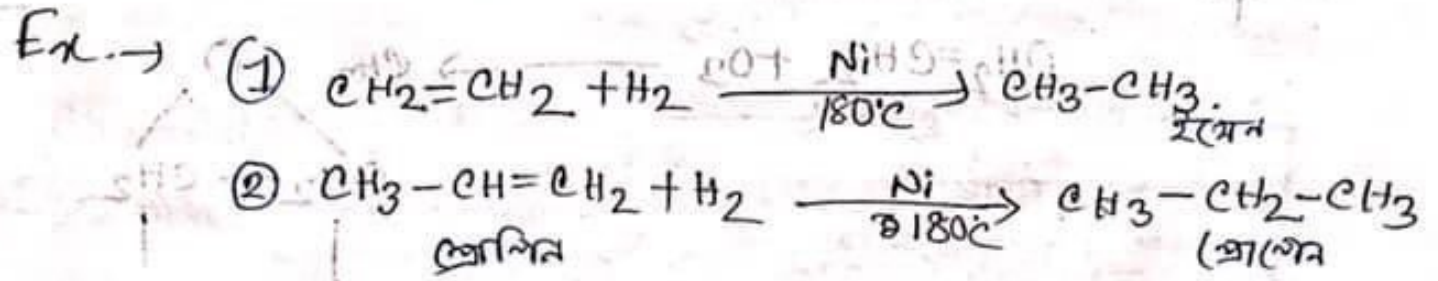 Ex. → ① CH2=CH2 + H2 —Ni/180°C→ CH3-CH3.
ইথেন
② CH3-CH=CH2 + H2 —Ni/180°C→ CH3-CH2-CH3
প্রোপিন প্রোপেন